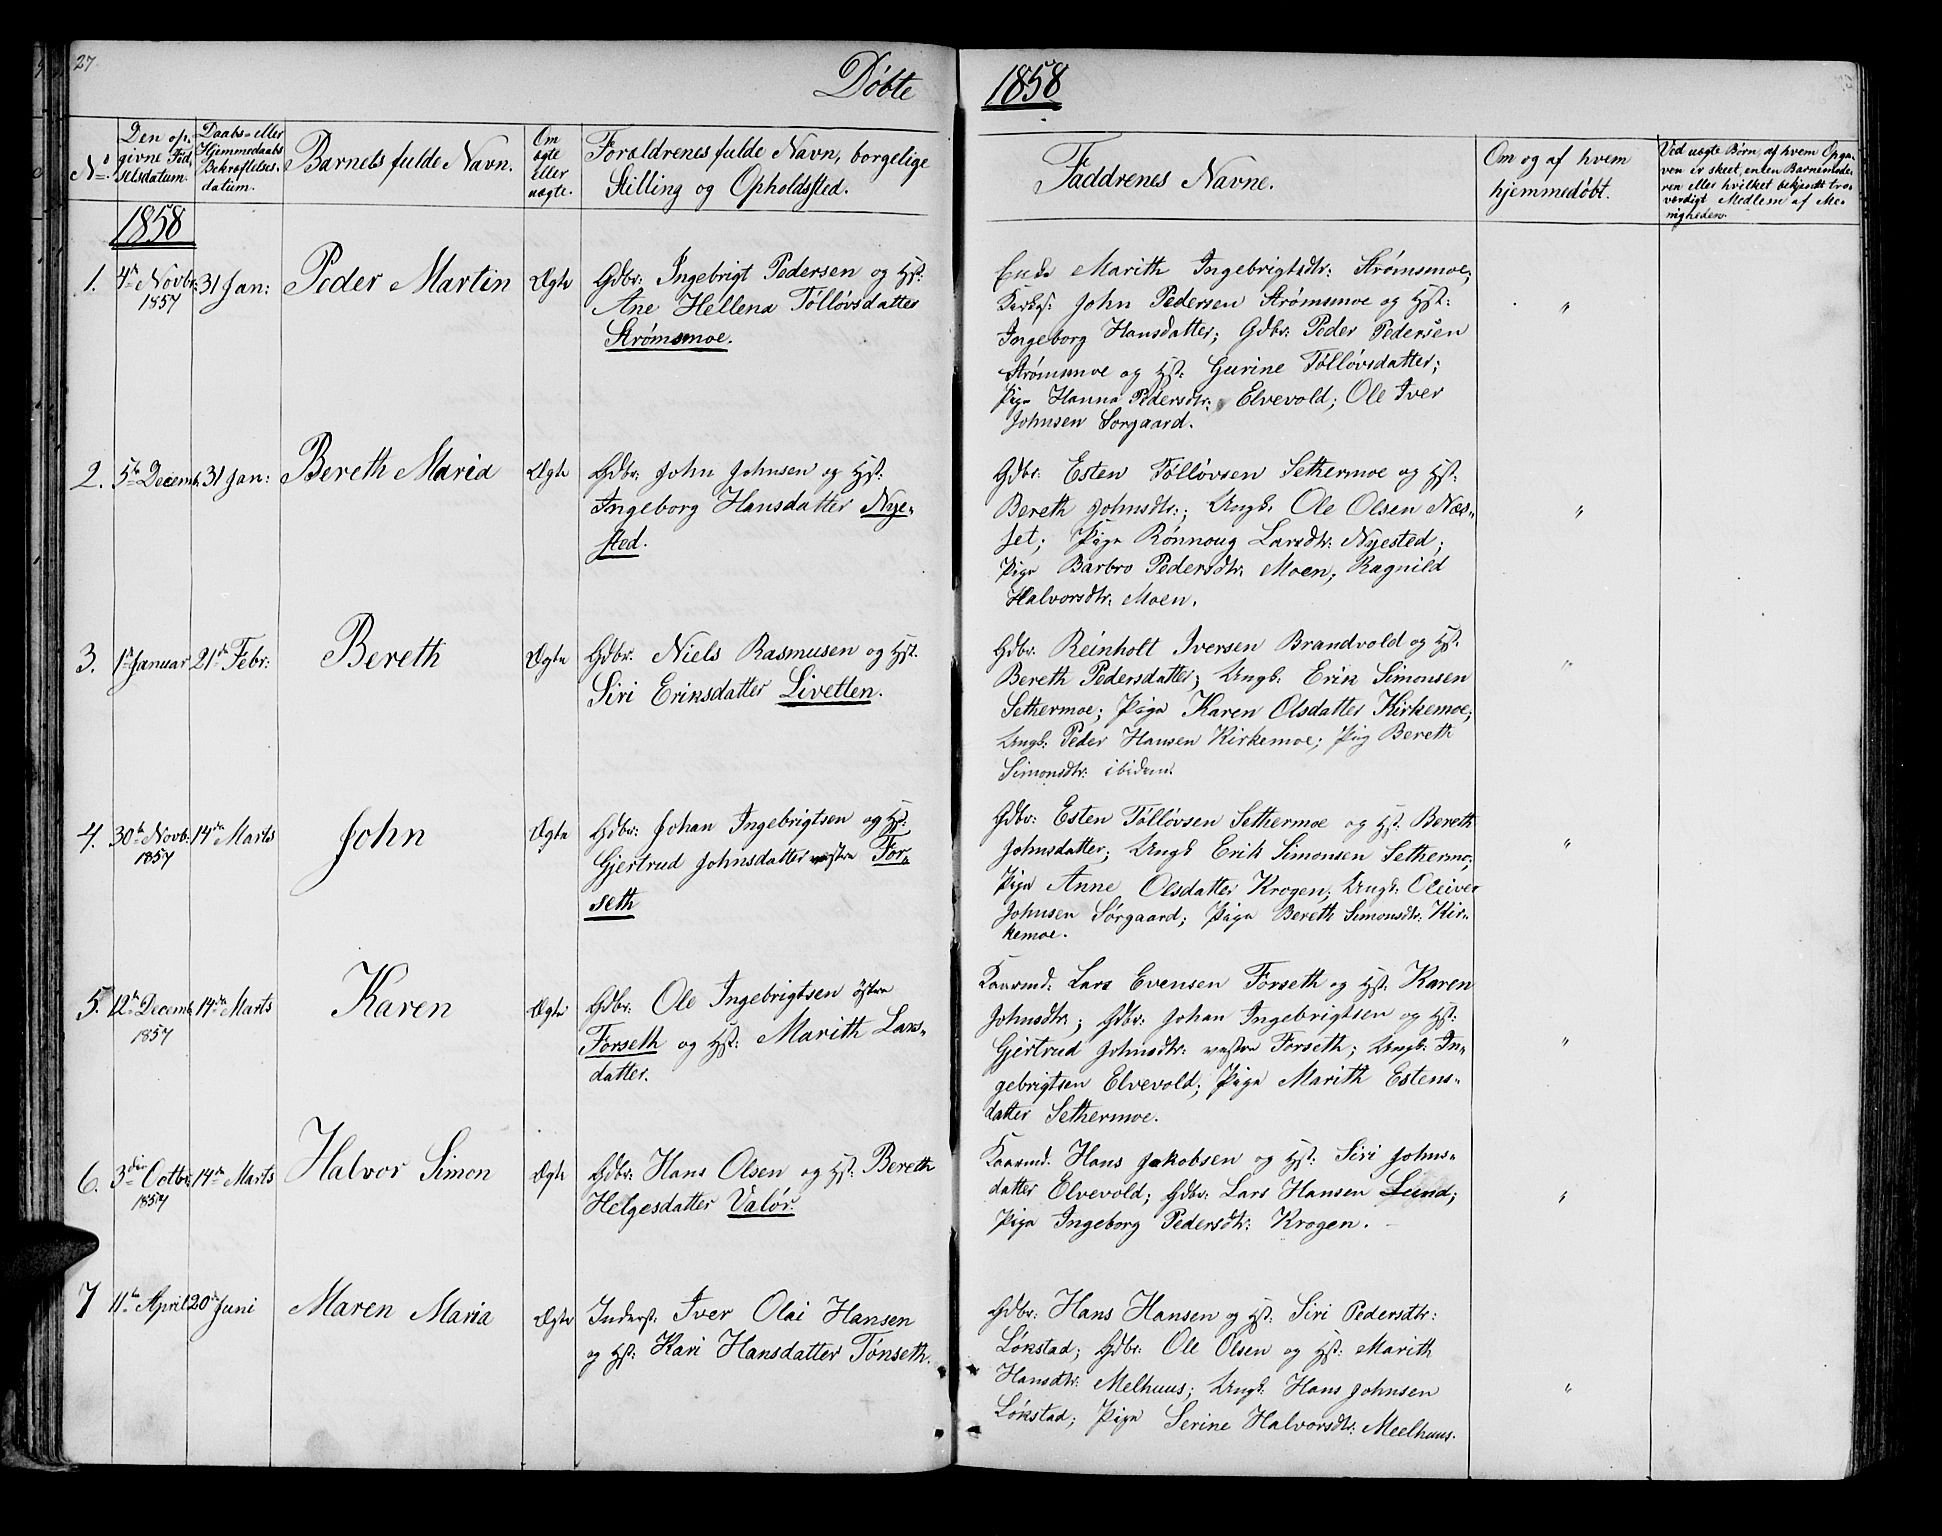 27
Døbte
1858
No.
Den op-
givne Fød-
selsdatum.
Daabs- eller
Hjemmedaabs
Bekræftelses-
datum.
Barnets fulde Navn.
Om
ægte
eller
uægte.
Forældrenes fulde Navn, borgelige
Stilling og Opholdssted.
Faddrenes Navne.
Om og af hvem
hjemmedøbt.
Ved uægte Børn, af hvem Opga-
ven er skeet, enten Barnemode-
ren eller hvilket bekjendt tro-
værdigt Medlem af Me-
nigheden.
1858
1.
4de Novbr:
1857
31 Jan:
Peder Martin
Ægte
Gdbr: Ingebrigt Pedersen og Hst:
Ane Hellena Tølløvsdatter
Strømsmoe.
Enke Marith Ingebrigtsdtr: Strømsmoe;
John Pedersen Strømsmoe og Hst:
Ingeborg Hansdatter; Gdbr: Peder Pedersen
Strømsmoe og Hst: Gurine Tølløvsdatter;
Pige Hanna Pedersdtr: Elvevold; Ole Iver
Johnsen Sørgaard.
"
2.
5te Decemb.
31 Jan:
Bereth Maria
Ægte
Gdbr: John Johnsen og Hst:
Ingeborg Hansdatter Nye-
sted.
Gdbr: Esten Tølløvsen Sethermoe og Hst:
Bereth Johnsdtr:; Ungk. Ole Olsen Næs-
set; Pige Rønnoug Larsdtr: Nyested;
Pige Barbro Pedersdtr: Moen, Ragnild
Halvorsdtr: Moen.
"
3.
1ste Januar
21de Febr:
Bereth
Ægte
Gdbr: Niels Rasmusen og Hst.
Siri Eriksdatter Livetten.
Gdbr: Reinholt Iversen Brandvold og Hst:
Bereth Pedersdatter; Ungk: Erik Simonsen
Sethermoe; Pige Karen Olsdatter Kirkemoe;
Ungk: Peder Hansen Kirkemoe; Pig Bereth
Simonsdtr: ibidem.
"
4.
30te Novb:
1857
14de Marts
John
Ægte
Gdbr: Johan Ingebrigtsen og Hst:
Gjertrud Johnsdatter vestre For-
seth
Gdbr: Esten Tølløvsen Sethermoe og Hst: Bereth
Johnsdatter; Ungk Erik Simonsen Sethermo;
Pige Anne Olsdatter Krogen; Ungk: Oliver
Johnsen Sørgaard; Pige Bereth Simonsdtr: Kir-
kemoe.
"
5.
12te Decemb.
1857
14de Marts
Karen
Ægte
Gdbr: Ole Ingebrigtsen østre
Forseth og Hst: Marith Lars-
datter.
Kaarmd: Lars Evensen Forseth og Hst: Karen
Johnsdtr:; Gdbr: Johan Ingebrigtsen og Hst:
Gjertrud Johnsdtr: vestre Forseth; Ungk: In-
gebrigtsen Elvevold; Pige Marith Estens-
datter Sethermoe.
"
6.
3die Octbr:
1857
14de Marts
Halvor Simon
Ægte
Gdbr: Hans Olsen og Hst: Bereth
Helgesdatter Valør.
Kaarmd. Hans Jakobsen og Hst: Siri Johns-
datter Elvevold; Gdbr: Lars Hansen Lund;
Pige Ingeborg Pedersdtr: Krogen.
"
7
11te April
20de Juni
Maren Maria
Ægte
Inderst: Iver Olai Hansen
og Hst: Kari Hansdatter Tønseth.
Gdbr: Hans Hansen og Hst: Siri Pedersdtr:
Løkstad; Gdbr: Ole Olsen og Hst: Marith
Hansdtr: Melhuus; Ungk: Hans Johnsen
Løkstad; Pige Serine Halvorsdtr: Meelhuus.
"